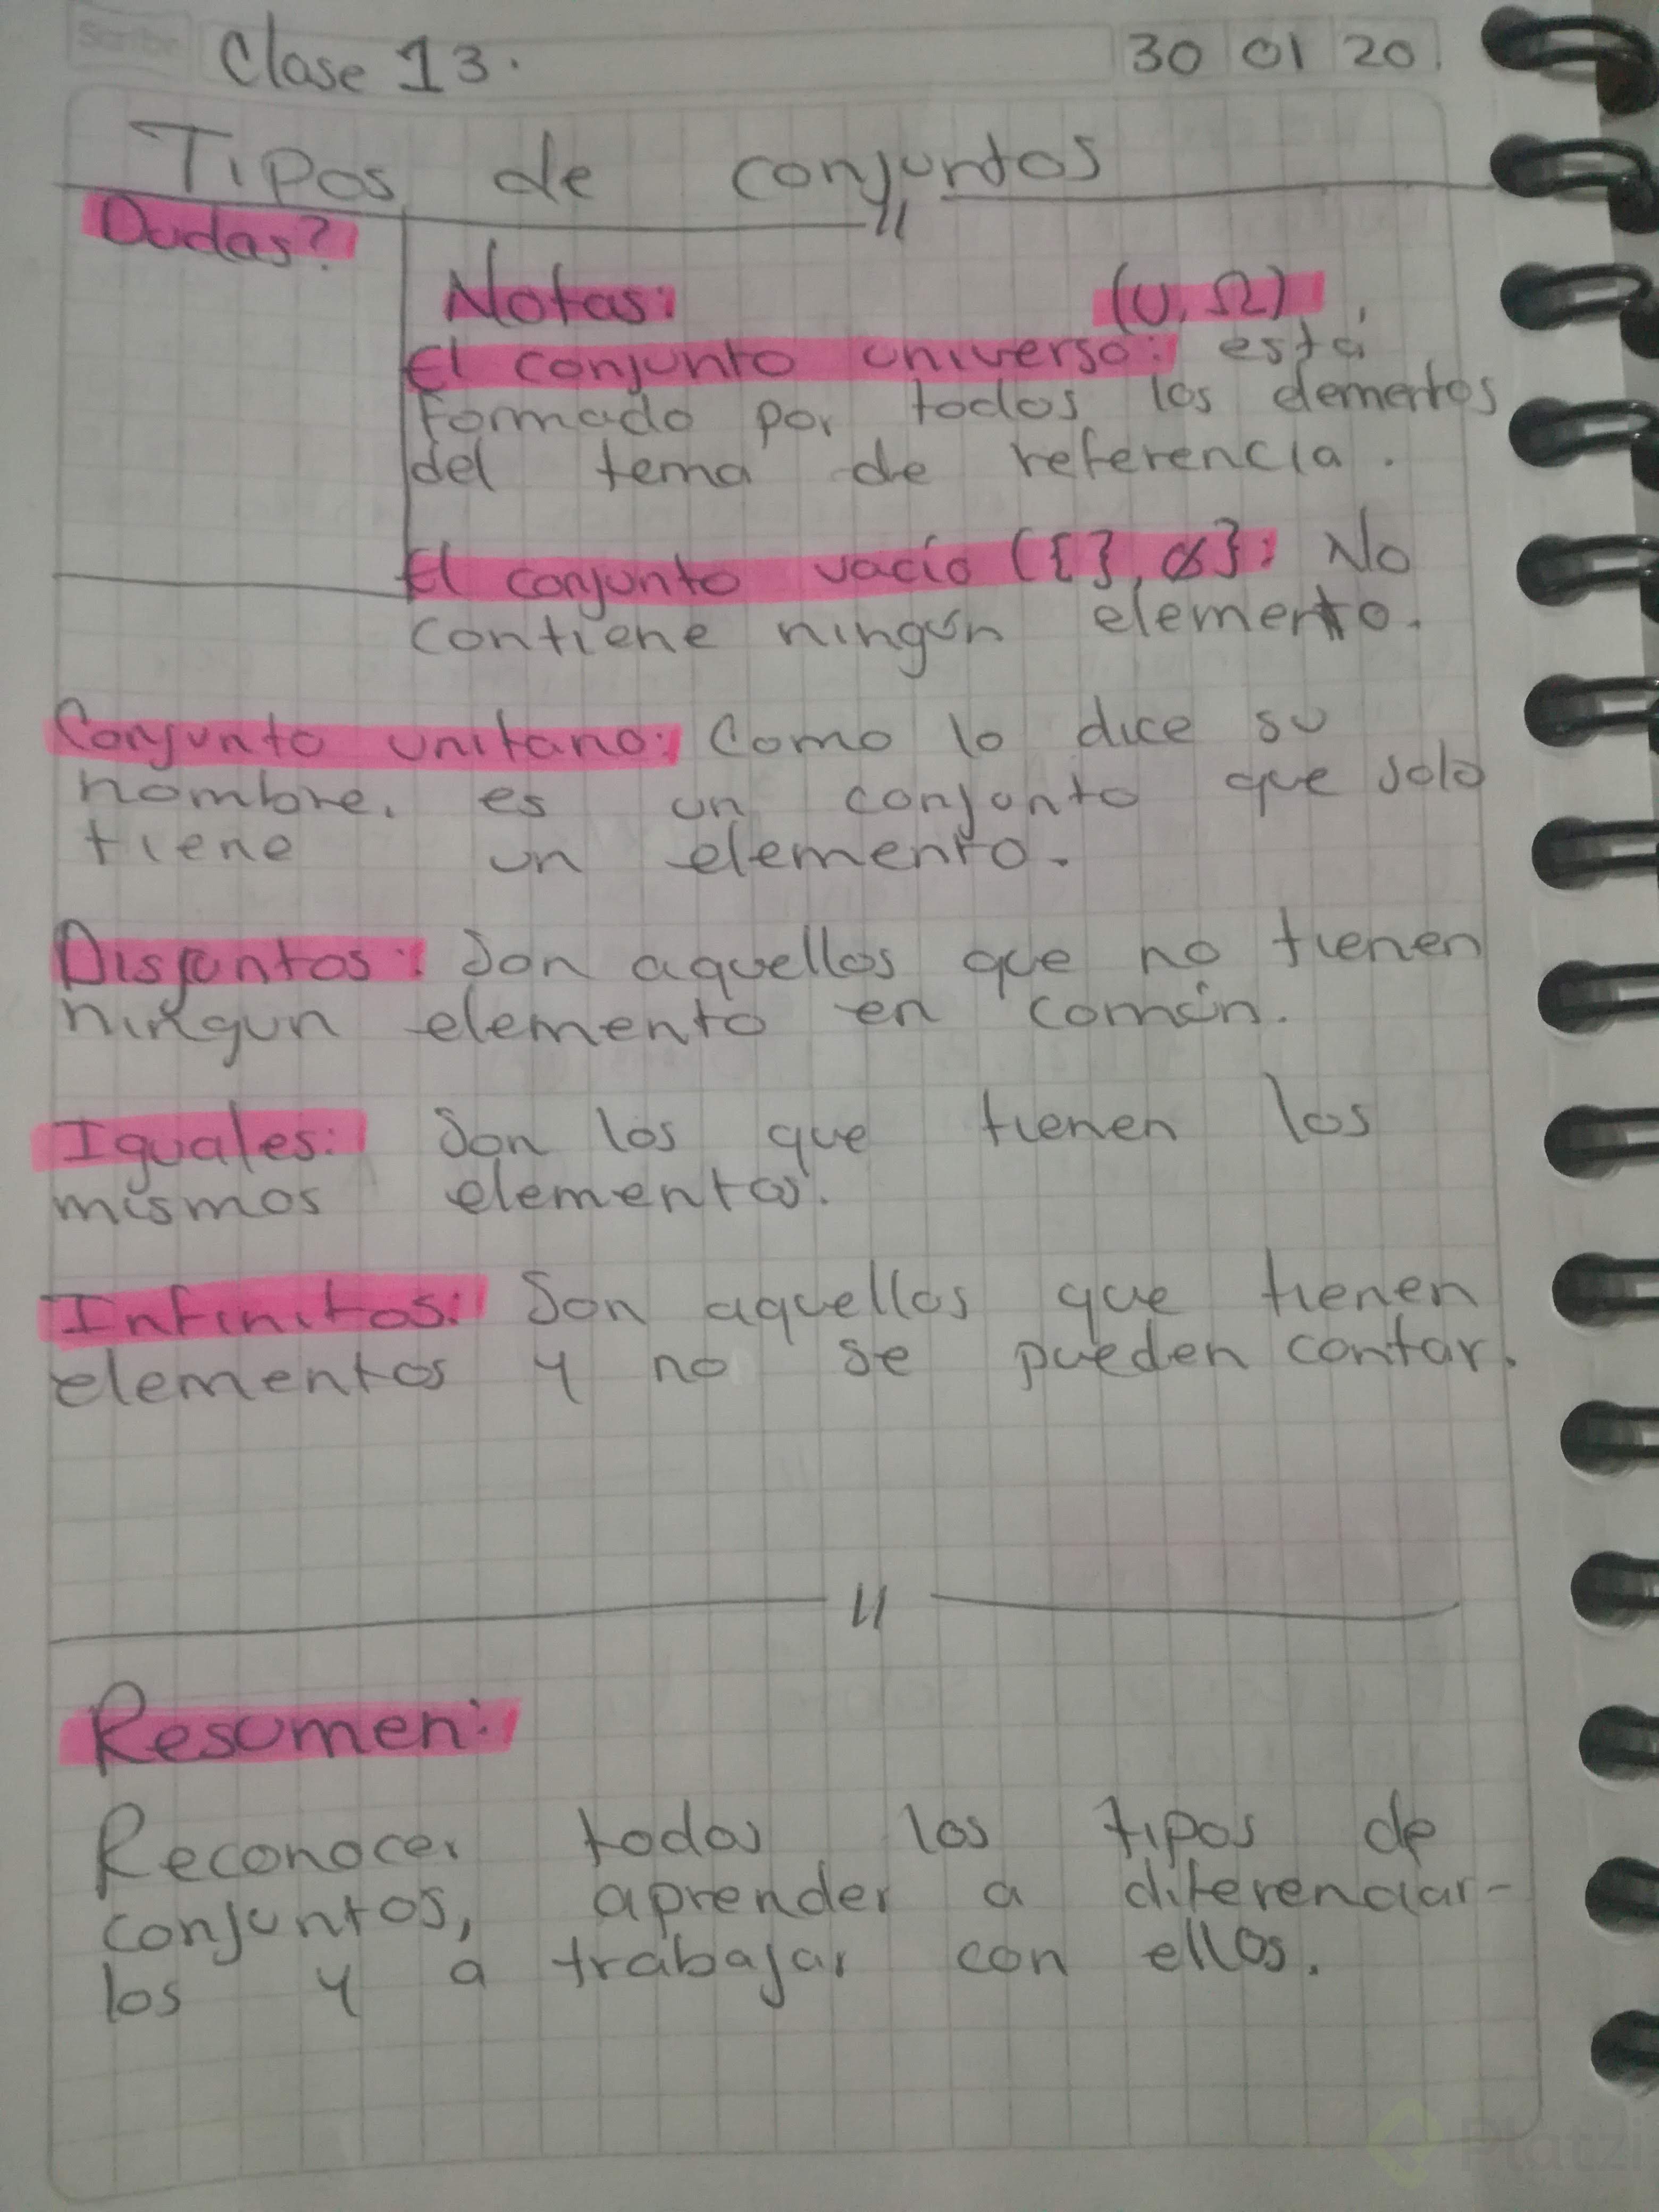 Scribe
Clase 13.
30 01 20.
Tipos de conjuntos
Dudas?
Notas: (U, Ω)
El conjunto universo: está
formado por todos los elementos
del tema de referencia.
El conjunto vacío ({ }, ∅}: No
contiene ningún elemento.
Conjunto unitario: Como lo dice su
nombre, es un conjunto que solo
tiene un elemento.
Disjuntos: Son aquellos que no tienen
ningun elemento en común.
Iguales: Son los que tienen los
mismos elementos.
Infinitos: Son aquellos que tienen
elementos y no se pueden contar.
Resumen:
Reconocer todos los tipos de
conjuntos, aprender a diferenciar-
los y a trabajar con ellos.
Platzi